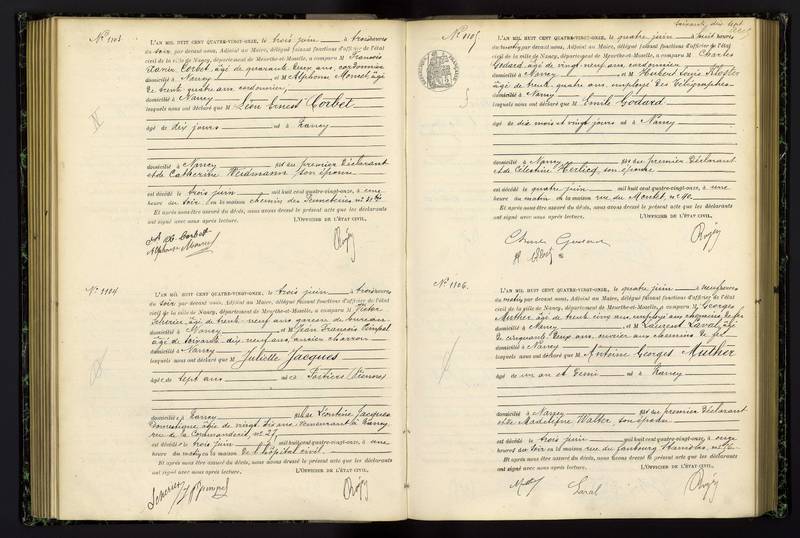 N° 1103
L'AN MIL HUIT CENT QUATRE-VINGT-ONZE, le trois juin à trois heures
du soir par devant nous, Adjoint au Maire, délégué faisant fonctions d'officier de l'état
civil de la ville de Nancy, département de Meurthe-et-Moselle, a comparu M François
Corbet, âgé de quarante deux ans, cordonnier
domicilié à Nancy et M Alphonse âgé
de trente quatre ans cordonnier,
domicilié à Nancy
lesquels nous ont déclaré que M Léon Ernest Corbet
âgé de dix jours né à Nancy
domicilié à Nancy fils du premier déclarant
et de Catherine Weidmann son épouse
est décédé le trois juin mil huit cent quatre-vingt-onze, à cinq
heures du soir en la maison chemin des
Et après nous être assuré du décès, nous avons dressé le présent acte que les déclarants
ont signé avec nous après lecture. L'OFFICIER DE L'ÉTAT CIVIL,
N° 1104
L'AN MIL HUIT CENT QUATRE-VINGT-ONZE, le trois juin à trois heures
du soir par devant nous, Adjoint au Maire, délégué faisant fonctions d'officier de l'état
civil de la ville de Nancy, département de Meurthe-et-Moselle, a comparu M Victor
âgé de trente neuf ans garçon de bureau
domicilié à Nancy et M Jean François
âgé de soixante dix neuf ans, ancien charron
domicilié à Nancy
lesquels nous ont déclaré que M Juliette Jacques
âgée de sept ans née à Poitiers (Vienne)
domiciliée à Nancy fille de Léontine Jacques
domestique âgée de vingt six ans, demeurant à Nancy
rue de la Commanderie, n° 27,
est décédée le trois juin mil huit cent quatre-vingt-onze, à une
heure du matin en la maison de l'hôpital civil.
Et après nous être assuré du décès, nous avons dressé le présent acte que les déclarants
ont signé avec nous après lecture. L'OFFICIER DE L'ÉTAT CIVIL,
soixante dix sept
N° 1105
L'AN MIL HUIT CENT QUATRE-VINGT-ONZE, le quatre juin à huit heures
du matin par devant nous, Adjoint au Maire, délégué faisant fonctions d'officier de l'état
civil de la ville de Nancy, département de Meurthe-et-Moselle, a comparu M Charles
Godard, âgé de vingt neuf ans, cordonnier
domicilié à Nancy et M Hubert Louis
âgé de trente quatre ans, employé des télégraphes
domicilié à Nancy
lesquels nous ont déclaré que M Emile Godard
âgé de dix mois et vingt jours né à Nancy
domicilié à Nancy fils du premier déclarant
et de Célestine son épouse
est décédé le quatre juin mil huit cent quatre-vingt-onze, à une
heure du matin en la maison rue du Montet, n° 40
Et après nous être assuré du décès, nous avons dressé le présent acte que les déclarants
ont signé avec nous après lecture. L'OFFICIER DE L'ÉTAT CIVIL,
N° 1106.
L'AN MIL HUIT CENT QUATRE-VINGT-ONZE, le quatre juin à neuf heures
du matin par devant nous, Adjoint au Maire, délégué faisant fonctions d'officier de l'état
civil de la ville de Nancy, département de Meurthe-et-Moselle, a comparu M Georges
Muther, âgé de trente cinq ans, employé aux chemins de fer
domicilié à Nancy et M Laurent Laval, âgé
de cinquante deux ans, ouvrier aux chemins de fer
domicilié à Nancy
lesquels nous ont déclaré que M Antoine Georges Muther
âgé de un an et demi né à Nancy
domicilié à Nancy fils du premier déclarant
et de Madeleine Walter, son épouse
est décédé le trois juin mil huit cent quatre-vingt-onze, à onze
heures du soir en la maison rue du faubourg Stanislas, n°
Et après nous être assuré du décès, nous avons dressé le présent acte que les déclarants
ont signé avec nous après lecture. L'OFFICIER DE L'ÉTAT CIVIL,
Laval